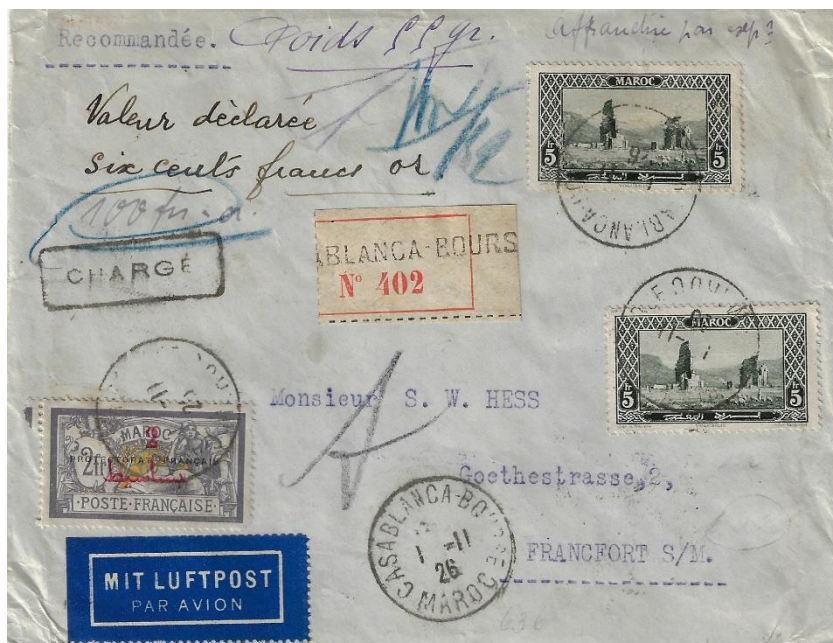 Recommandée. Poids 55 gr.
Affranchie par exp?
Valeur déclarée
six cents francs or
100 fr. - a.
CHARGÉ
ABLANCA-BOURS
Nº 402
MAROC
5 fr 5 fr
CASABLANCA
26
MAROC
5 fr 5 fr
Monsieur S. W. HESS
Goethestrasse, 2,
FRANCFORT S/M.
MAROC
PROTECTORAT FRANÇAIS
2fr
·POSTE FRANÇAISE·
CASABLANCA-BOURSE
1 -11
26
MAROC
MIT LUFTPOST
PAR AVION